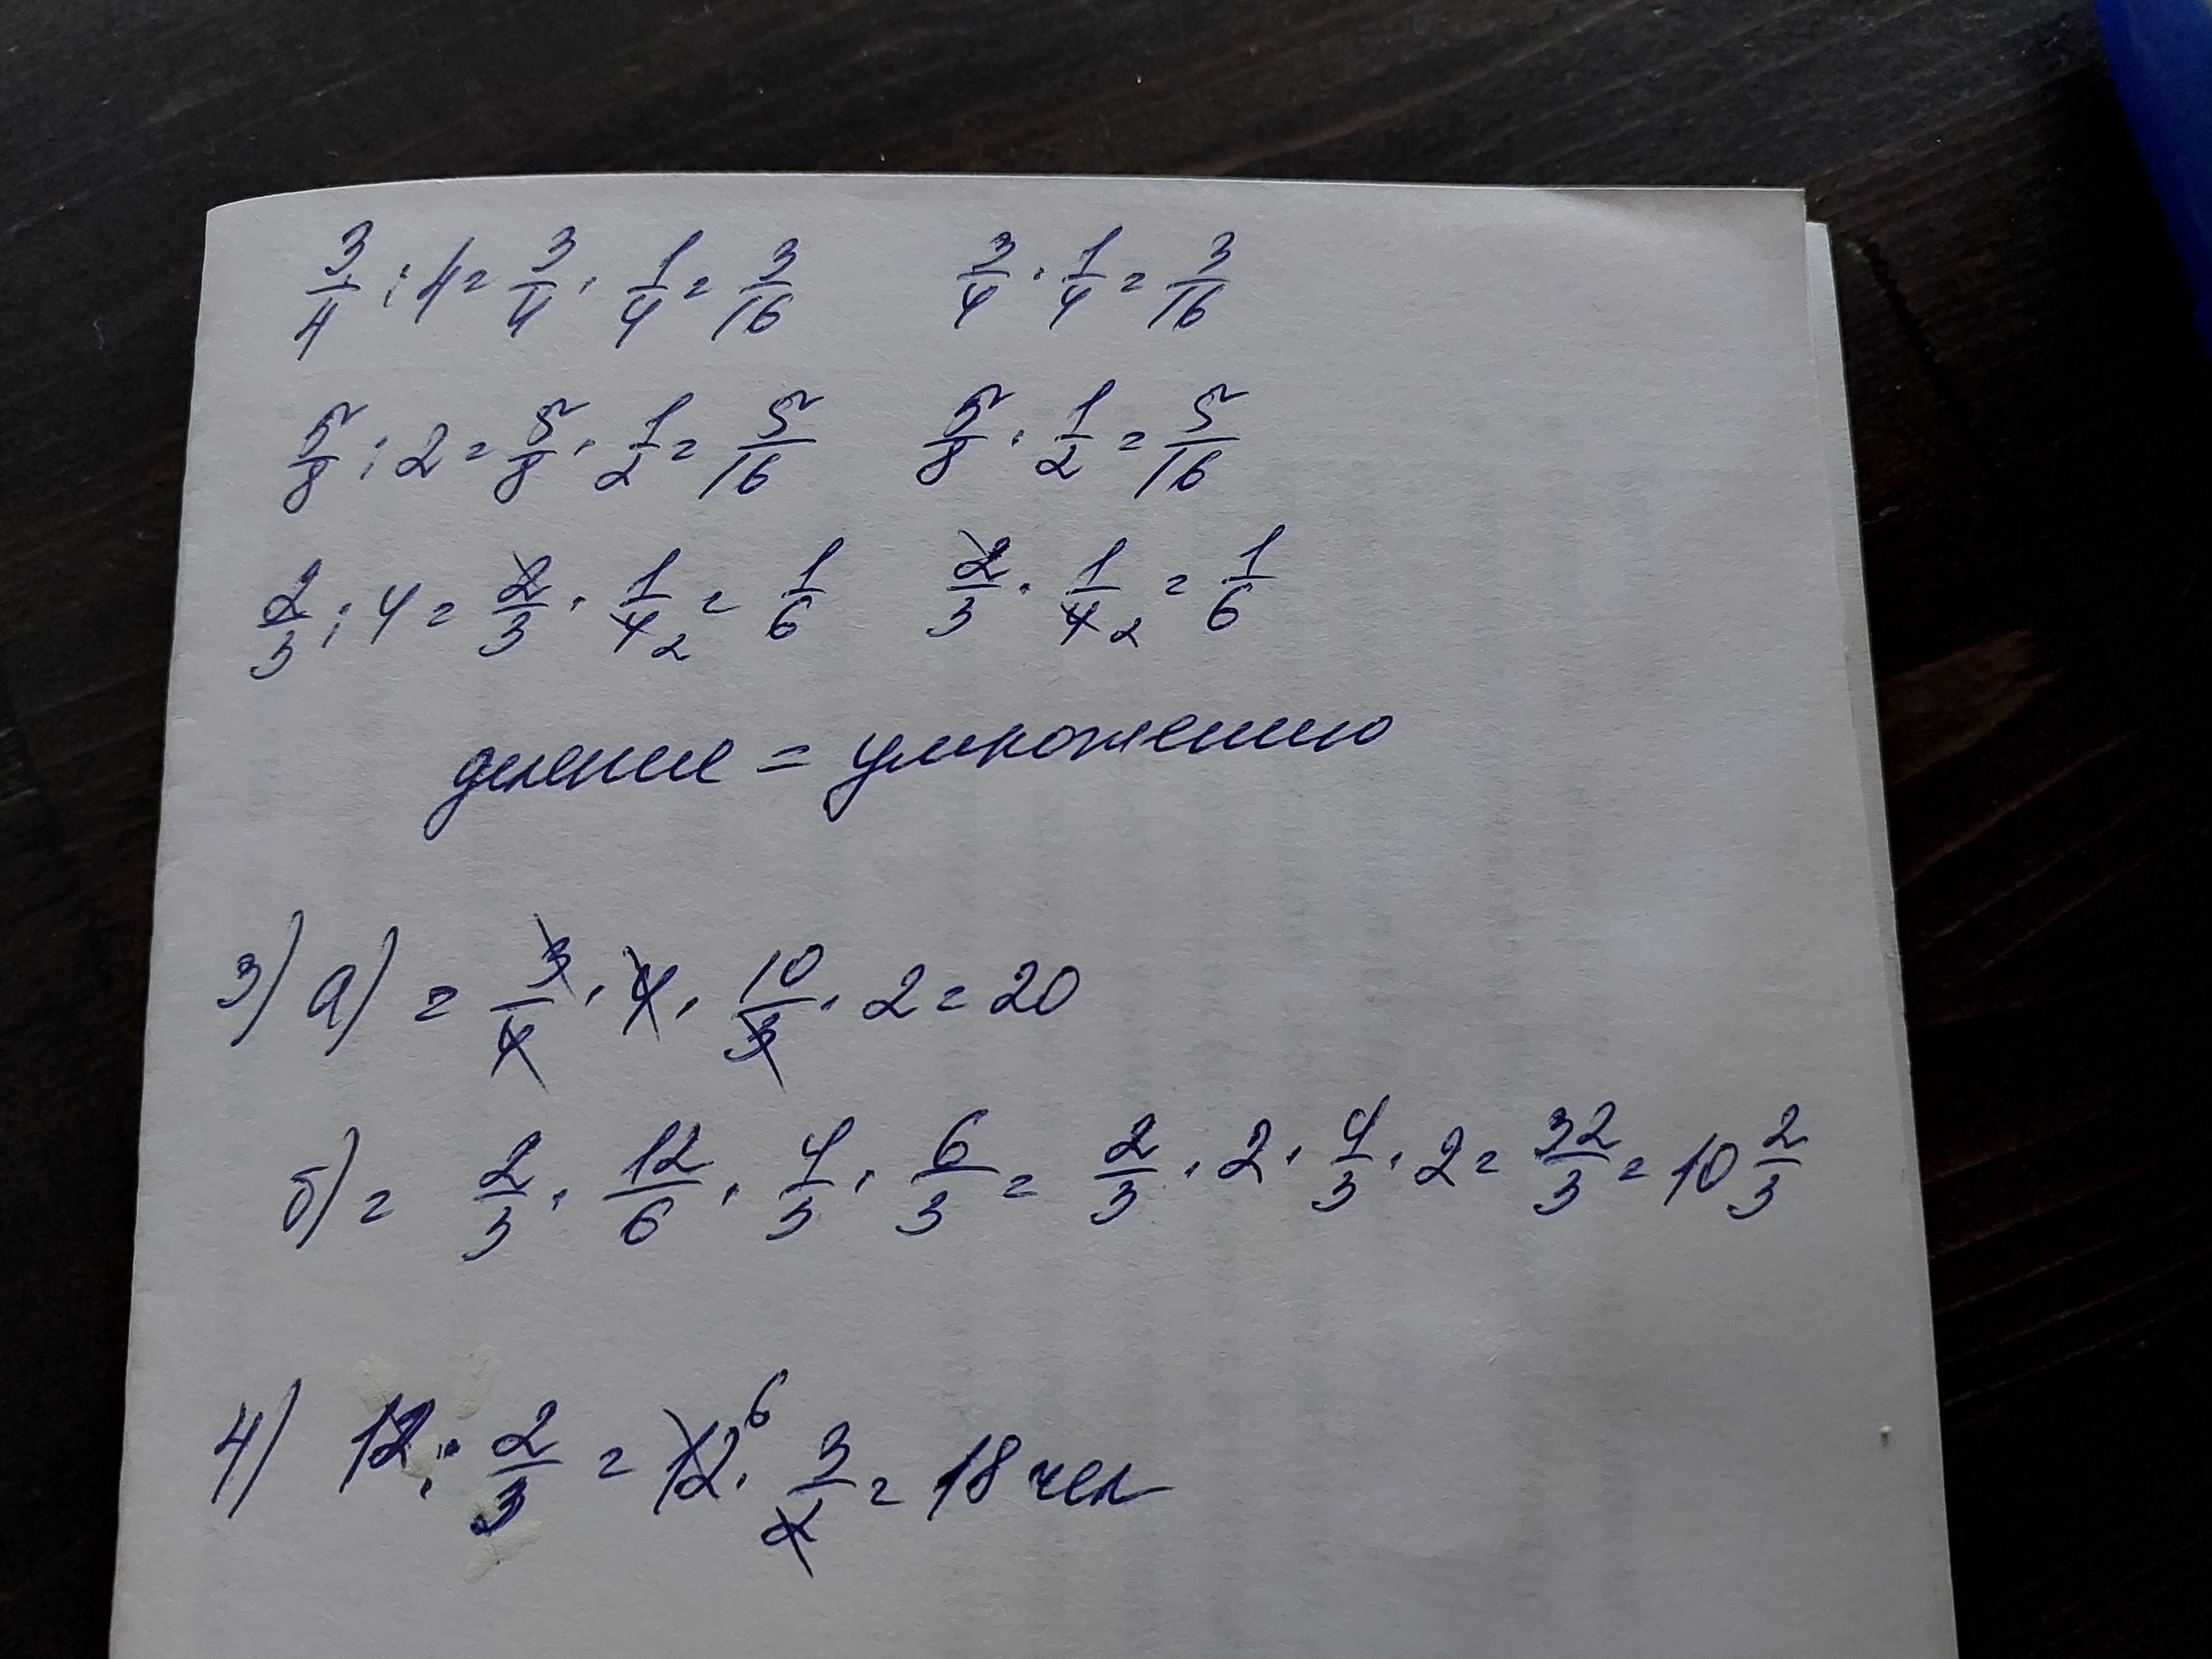 3/4 : 4 = 3/4 · 1/4 = 3/16   3/4 · 1/4 = 3/16
5/8 : 2 = 5/8 · 1/2 = 5/16   5/8 · 1/2 = 5/16
2/3 : 4 = 2/3 · 1/4 2 = 1/6   2/3 · 1/4 2 = 1/6
деление = умножению
3) а) = 3/4 · 4 · 10/3 · 2 = 20
б) = 2/3 · 12/6 · 4/3 · 6/3 = 2/3 · 2 · 4/3 · 2 = 32/3 = 10 2/3
4) 12 : 2/3 = 12 6 · 3/2 = 18 чел